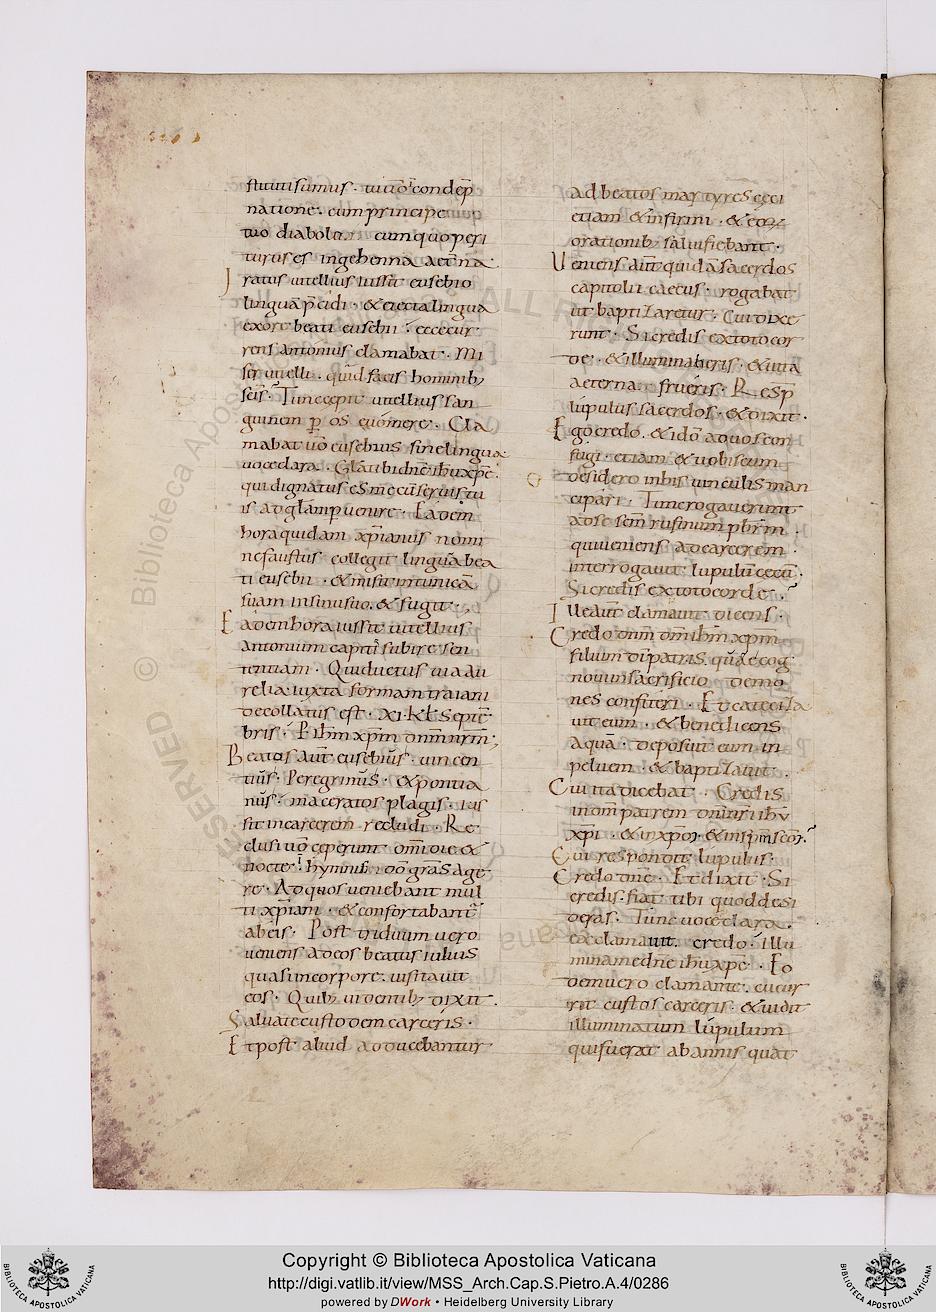 stituti sumus · tu uo condep
natione · cum principe
tuo diabolo cum quo peri
turus es in gehenna aetna
Iratus uitellius iussit eusebio
lingua pcidi · & eiecta lingua
ex ore beati eusebii · ecce cur
rens antonius clamabat · Mi
ser uitelli · quid facis hominib;
scis · Tunc cepit uitellius san
guinem p os euomere · Cla
mabat uo eusebius sine lingua
uoce clara · Glati bi dne ihu xpe
qui dignatus es me cu seruis tu
is ad glam puenire · Eadem
hora quidam xpianus nomi
ne faustus collegit lingua bea
ti eusebii · & misit in tunica
suam in sinu suo · & fugit ·
Eadem hora iussit uitellius
antonium capiti subire sen
tentiam · Qui ductus uia au
relia iuxta formam traiani
decollatus est · XI · Kl Septe
bris · P ihm xpm dnm nrm ;
Beatos aut eusebius · uincen
tius · Peregrinus · & pontia
nus · maceratos plagis · ius
sit in carcerem recludi · Re
clusi uo ceperunt omi die &
nocte hymnis do gras age
re · Ad quos ueniebant mul
ti xpiani · & confortabant
ab eis · Post triduum uero
ueniens ad eos beatus iulius
quasi in corpore uisitauit
eos · Quib; uidentib; dixit ·
Saluate custodem carceris ·
Et post aliud adducebantur
ad beatos martyres ceci
etiam & infirmi · & eor
orationib; saluifiebant ·
Ueniens aut quida sacerdos
capitolii caecus · rogabat
ut baptizaretur · Cui dixe
runt · Si credis ex toto cor
de · & illuminaberis · & uita
aeterna frueris · Resp
lupulus sacerdos · & dixit ·
Ego credo · & ido ad uos con
fugi · etiam & uobiscum
desidero in his uinculis man
cipari · Tunc rogauerunt
ad se scm rufinum pbrm ·
qui ueniens ad carcerem ·
interrogauit lupulu cecu ·
Si credis ex toto corde ·
Ille aut clamauit dicens ·
Credo dnm dm ihm xpm
filium di patris · que cog
noui in sacrificio demo
nes confiteri · Et cateciza
uit eum · & benedicens
aqua · deposuit eum in
peluem · & baptizauit ·
Cui ita dicebat · Credis
in dm patrem dni nri ihu
xpi · & in xpo · & in spm scm
Cui respondit lupulus ·
Credo dne · Et dixit · Si
credis · fiat tibi quod desi
deras · Tunc uoce clara
exclamauit · credo · illu
mina me dne ihu xpe · Eo
dem uero clamante · cucur
rit custos carceris · & uidit
illuminatum lupulum
qui fuerat ab annis quat
Copyright © Biblioteca Apostolica Vaticana
http://digi.vatlib.it/view/MSS_Arch.Cap.S.Pietro.A.4/0286
powered by DWork • Heidelberg University Library